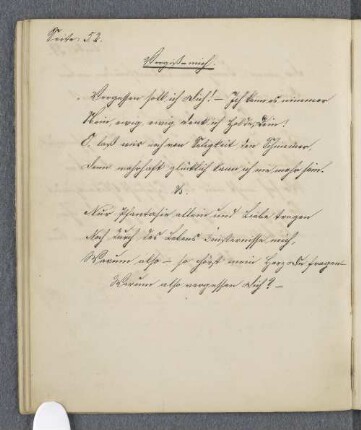 Seite 52.
Vergiß mich
Vergessen soll ich Dich! – Ich kann es nimmer
Nein ewig ewig denk ich Holde, Dein!
O, laßt mir nur der Seligkeit den Schimmer,
Denn wahrhaft glücklich kann ich nie mehr sein.
Nur Phantasie allein und Liebe tragen
Noch durch des Lebens Finsternisse mich,
Warum also – so hör' mein Herz Du fragen –
Warum also vergessen Dich? –